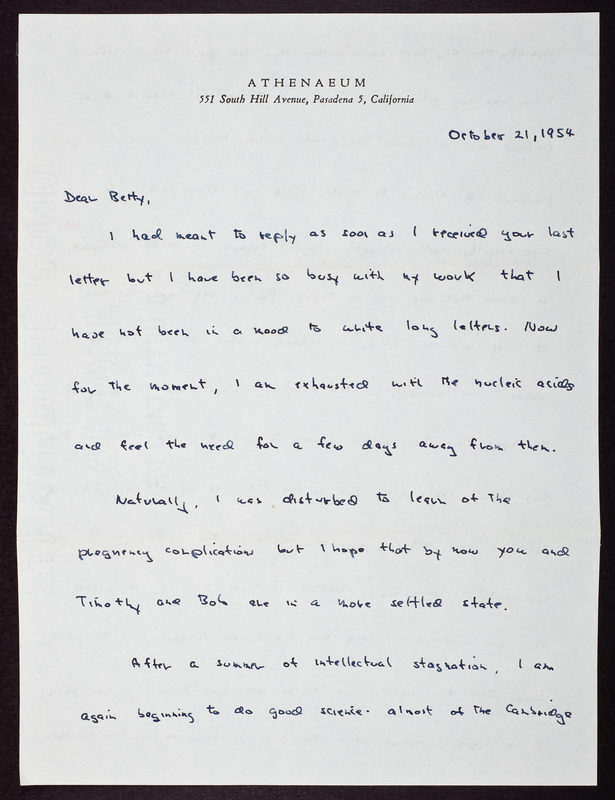 ATHENAEUM
551 South Hill Avenue, Pasadena 5, California
October 21, 1954
Dear Betty,
I had meant to reply as soon as I received your last
letter but I have been so busy with my work that I
have not been in a mood to write long letters. Now
for the moment, I am exhausted with the nucleic acids
and feel the need for a few days away from them.
Naturally, I was disturbed to learn of the
pregnency complications but I hope that by now you and
Timothy and Bob are in a more settled state.
After a summer of intellectual stagnation, I am
again beginning to do good science. almost of the Cambridge